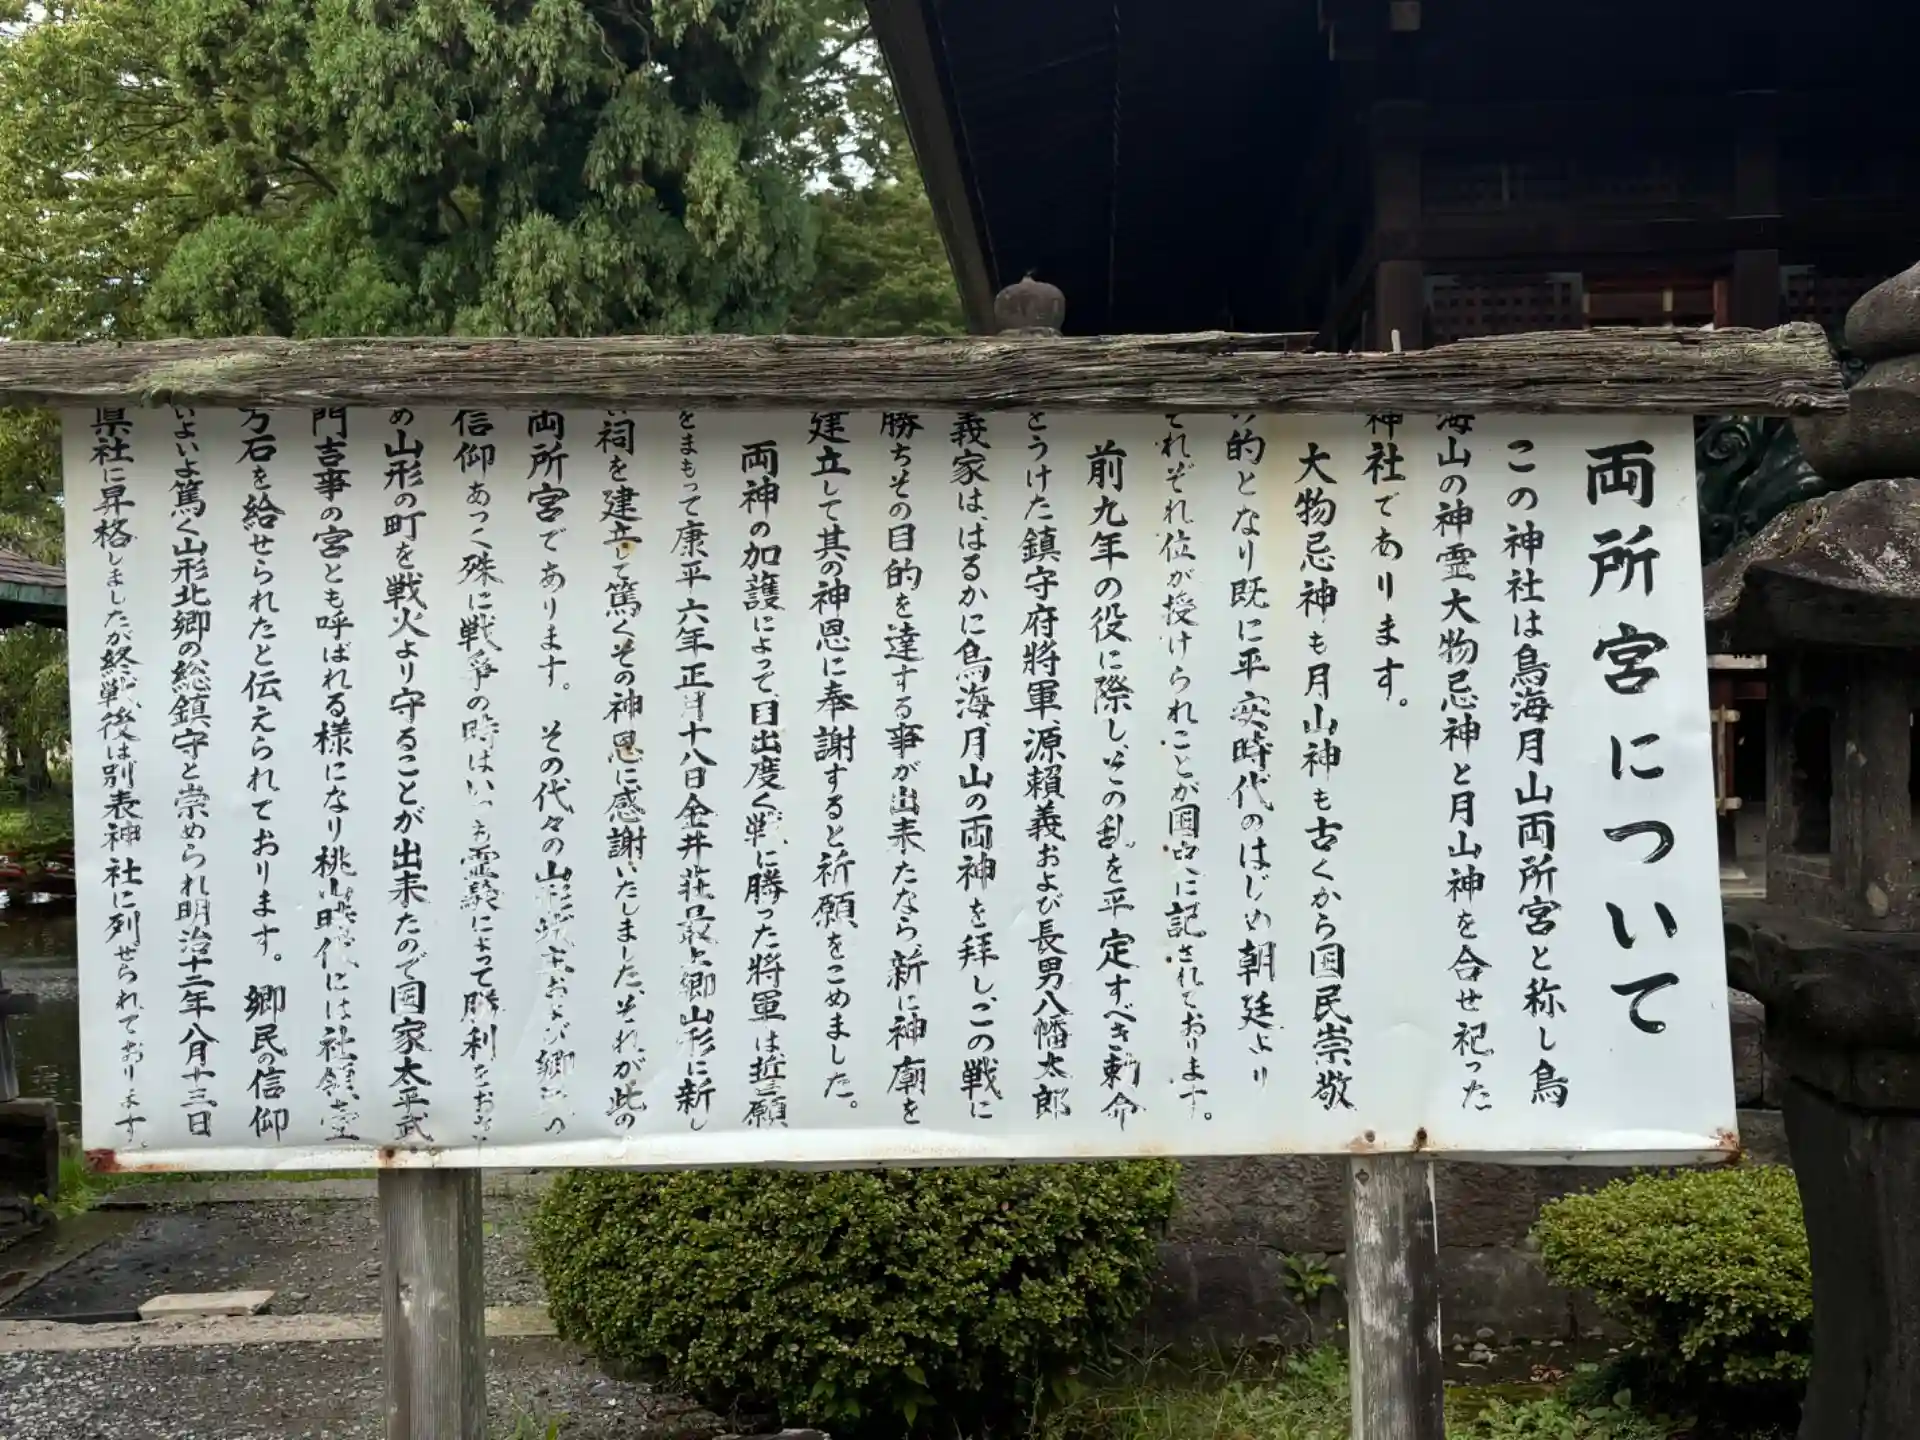 両所宮について
この神社は鳥海月山両所宮と称し鳥
海山の神霊大物忌神と月山神を合せ祀った
神社であります。
大物忌神も月山神も古くから国民崇敬
の的となり既に平安時代のはじめ朝廷より
それぞれ位が授けられことが国史に記されております。
前九年の役に際し、この乱を平定すべき勅命
をうけた鎮守府将軍、源頼義および長男八幡太郎
義家は、はるかに鳥海、月山の両神を拝し、この戦に
勝ちその目的を達する事が出来たなら、新に神廟を
建立して其の神恩に奉謝すると祈願をこめました。
両神の加護によって、目出度く戦に勝った将軍は誓願
をまもって康平六年正月十八日金井荘最上郷山形に新し
い祠を建立して篤くその神恩に感謝いたしました、それが此の
両所宮であります。その代々の山形城主および郷民の
信仰あつく殊に戦争の時はいつも霊験によって勝利をおさ
め山形の町を戦火より守ることが出来たので国家太平武
門吉事の宮とも呼ばれる様になり桃山時代には社領壹
万石を給せられたと伝えられております。郷民の信仰
いよいよ篤く山形北郷の総鎮守と崇められ明治十二年八月十三日
県社に昇格しましたが終戦後は別表神社に列せられております。